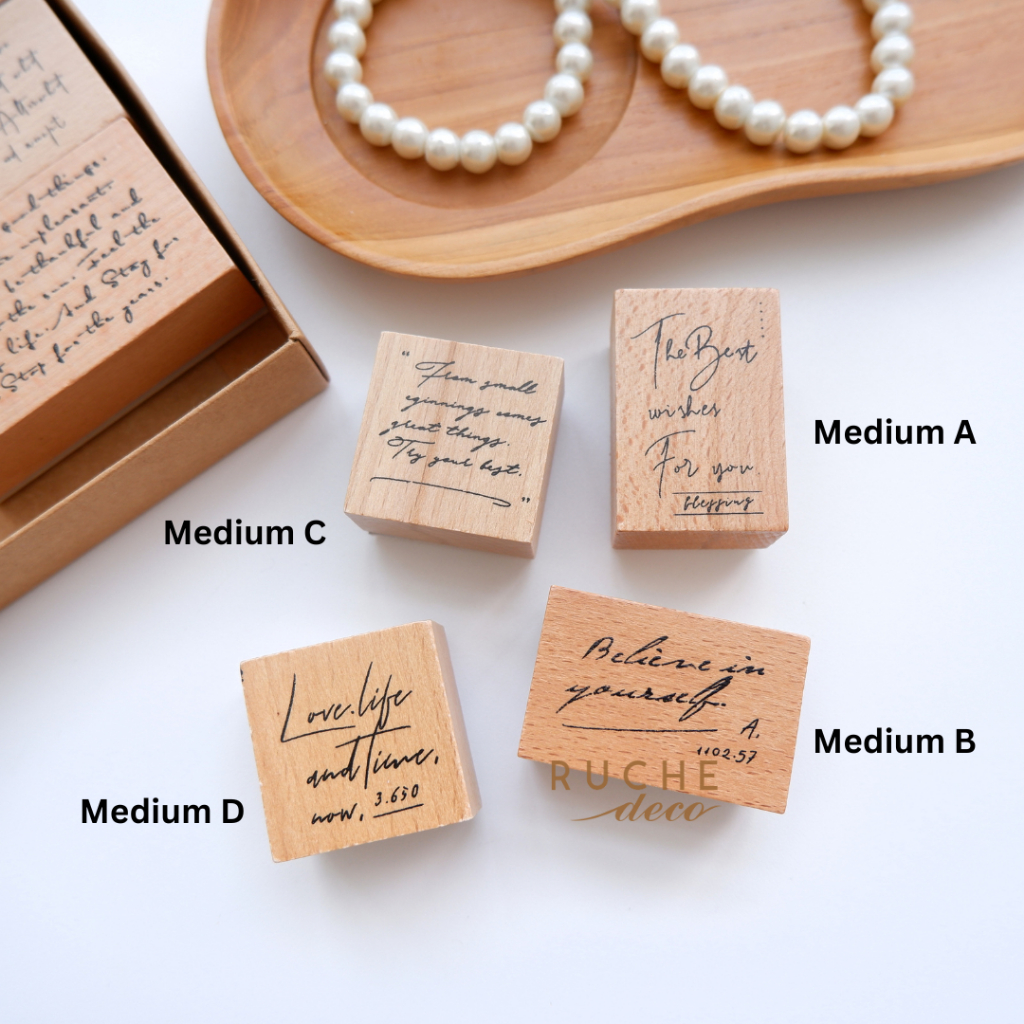 Attract
good things.
unpleasant.
be thankful and
the sun. Feel the
life. And Stay for
Stay for the years.
" From small
eginnings comes
great things.
Try your best.
"
The Best
wishes
For you.
blessing
Medium A
Medium C
Believe in
yourself.
A.
1102.57
Medium B
RUCHE
deco
Love.life
and Time,
now, 3.650
Medium D